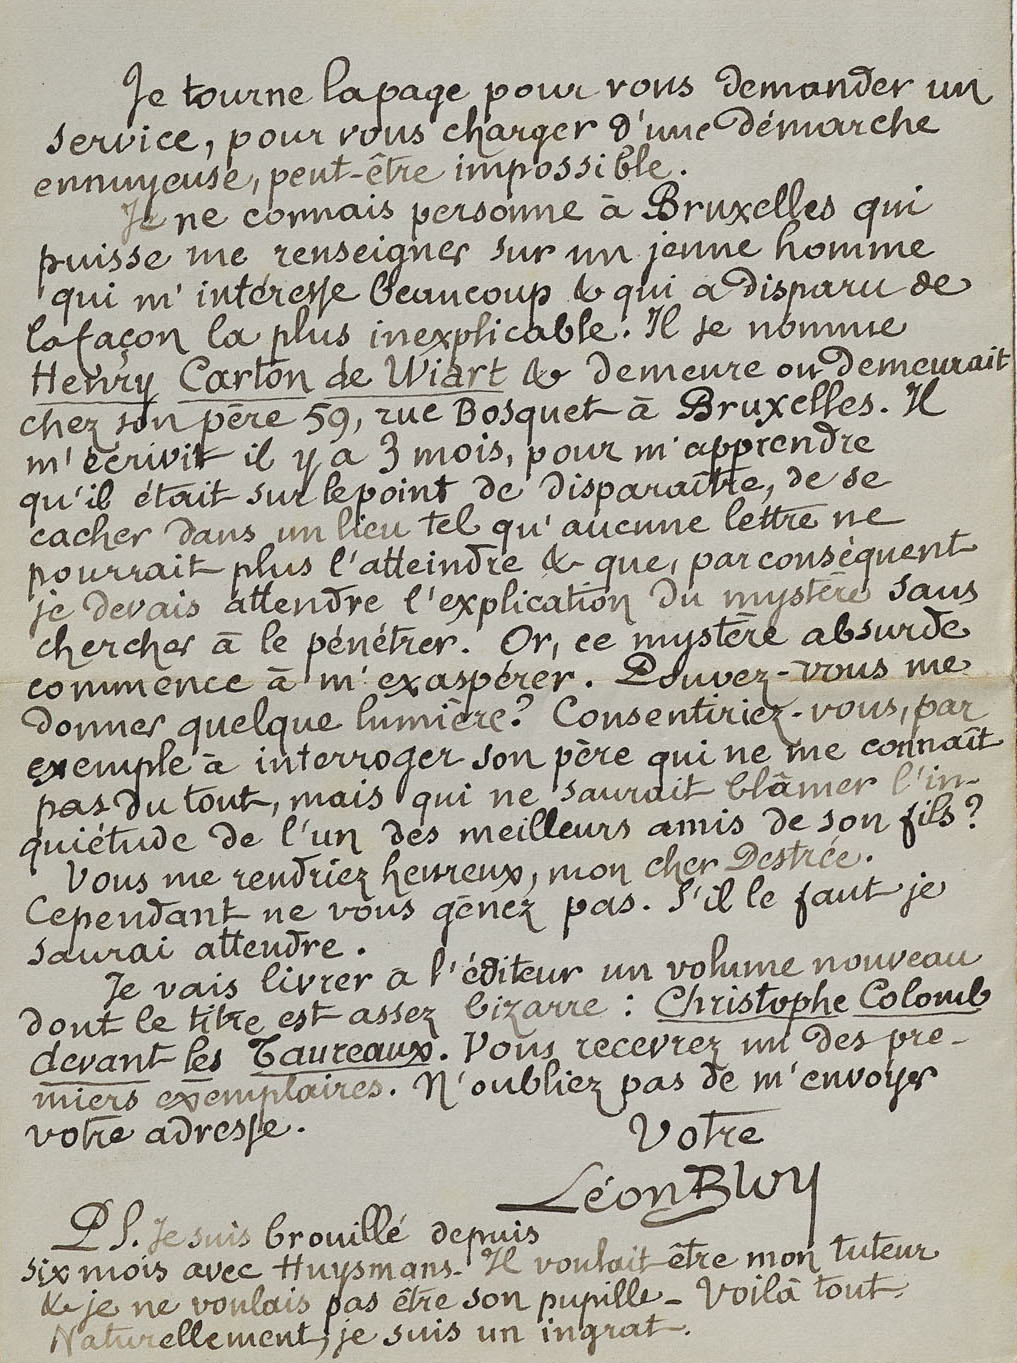 Je tourne la page pour vous demander un
service, pour vous charger d'une démarche
ennuyeuse, peut-être impossible.
Je ne connais personne à Bruxelles qui
puisse me renseigner sur un jeune homme
qui m'intéresse beaucoup & qui a disparu de
la façon la plus inexplicable. Il se nomme
Henry Carton de Wiart & demeure ou demeurait
chez son père 59, rue Bosquet à Bruxelles. Il
m'écrivit il y a 3 mois, pour m'apprendre
qu'il était sur le point de disparaître, de se
cacher dans un lieu tel qu'aucune lettre ne
pourrait plus l'atteindre & que, par conséquent
je devais attendre l'explication du mystère sans
chercher à le pénétrer. Or, ce mystère absurde
commence à m'exaspérer. Pouvez-vous me
donner quelque lumière? Consentiriez-vous, par
exemple à interroger son père qui ne me connaît
pas du tout, mais qui ne saurait blâmer l'in-
quiétude de l'un des meilleurs amis de son fils?
Vous me rendriez heureux, mon cher Destrée.
Cependant ne vous gênez pas. S'il le faut je
saurai attendre.
Je vais livrer à l'éditeur un volume nouveau
dont le titre est assez bizarre : Christophe Colomb
devant les Taureaux. Vous recevrez un des pre-
miers exemplaires. N'oubliez pas de m'envoyer
votre adresse.
Votre
Léon Bloy
PS. Je suis brouillé depuis
six mois avec Huysmans. Il voulait être mon tuteur
& je ne voulais pas être son pupille - Voilà tout.
Naturellement, je suis un ingrat.